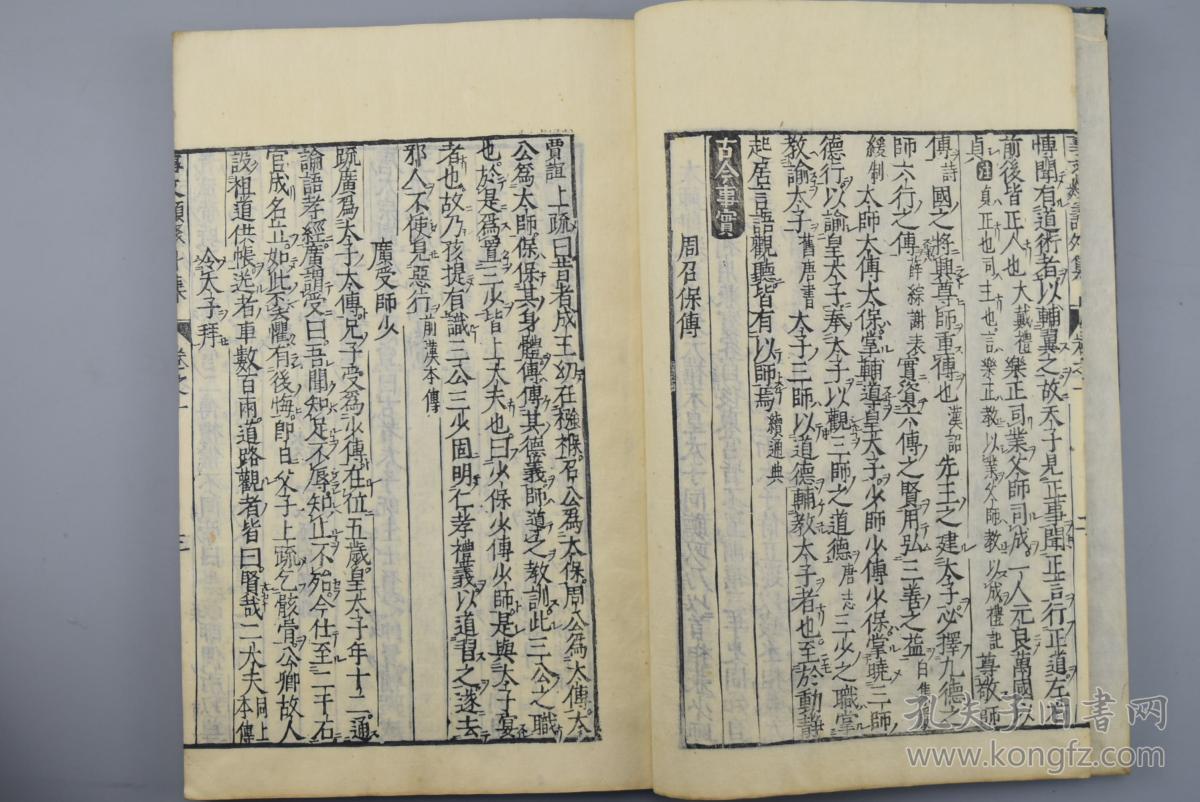 傳聞有道術者以輔翼之故太子見正事聞正言行正道左右
前後皆正人也大戴禮樂正司業父師司成一人元良萬國以
貞注貞正也司主也言樂正教以業父師教以成禮記尊敬師
傅詩國之將興尊師重傅也漢詔先王之建太子必擇九德之
師六行之傅薛綜謝表實資六傅之賢用弘三善之益白集
緩制太師太傅太保掌輔導皇太子少師少傅少保掌曉三師
德行以諭皇太子奉太子以觀三師之道德唐志三少之職掌
教諭太子舊唐書太子三師以道德輔教太子者也至於動靜
起居言語觀聽皆有以師焉續通典
古今事實
周召保傅
賈誼上疏曰昔者成王幼在襁褓召公為太保周公為太傅太
公為太師保保其身體傅傅其德義師導之教訓此三公之職
也於是為置三少皆上大夫也曰少保少傅少師是與太子宴
者也故乃孩提有識三公三少固明仁孝禮義以道習之逐去
邪人不使見惡行前漢本傳
廣受師少
疏廣為太子太傅兄子受為少傅在位五歲皇太子年十二通
論語孝經廣謂受曰吾聞知足不辱知止不殆今仕至二千石
官成名立如此不去懼有後悔即日父子上疏乞骸骨公卿故人
設祖道供帳送者車數百兩道路觀者皆曰賢哉二大夫同上本傳
令太子拜
卷之一
三
孔夫子旧书网
www.kongfz.com